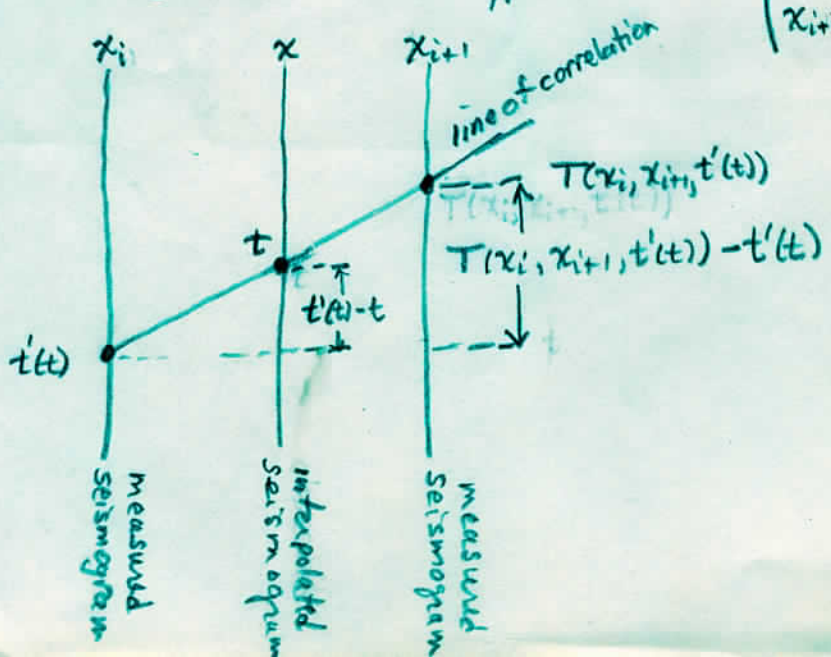 x_i x x_{i+1} (x_{i+
line of correlation
T(x_i, x_{i+1}, t'(t))
t T(x_i, x_{i+1}, t'(t)) - t'(t)
t'(t)-t
t'(t)
measured
seismogram
interpolated
seismogram
measured
seismogram